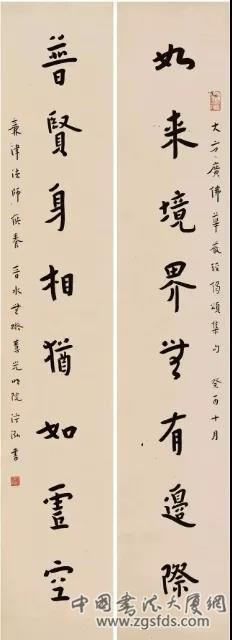 大方廣佛華嚴經偈頌集句 癸酉十月
如来境界無有邊際
普賢身相猶如虛空
津法師供養 晉水 書
中国书法大厦网
www.zgsfds.com